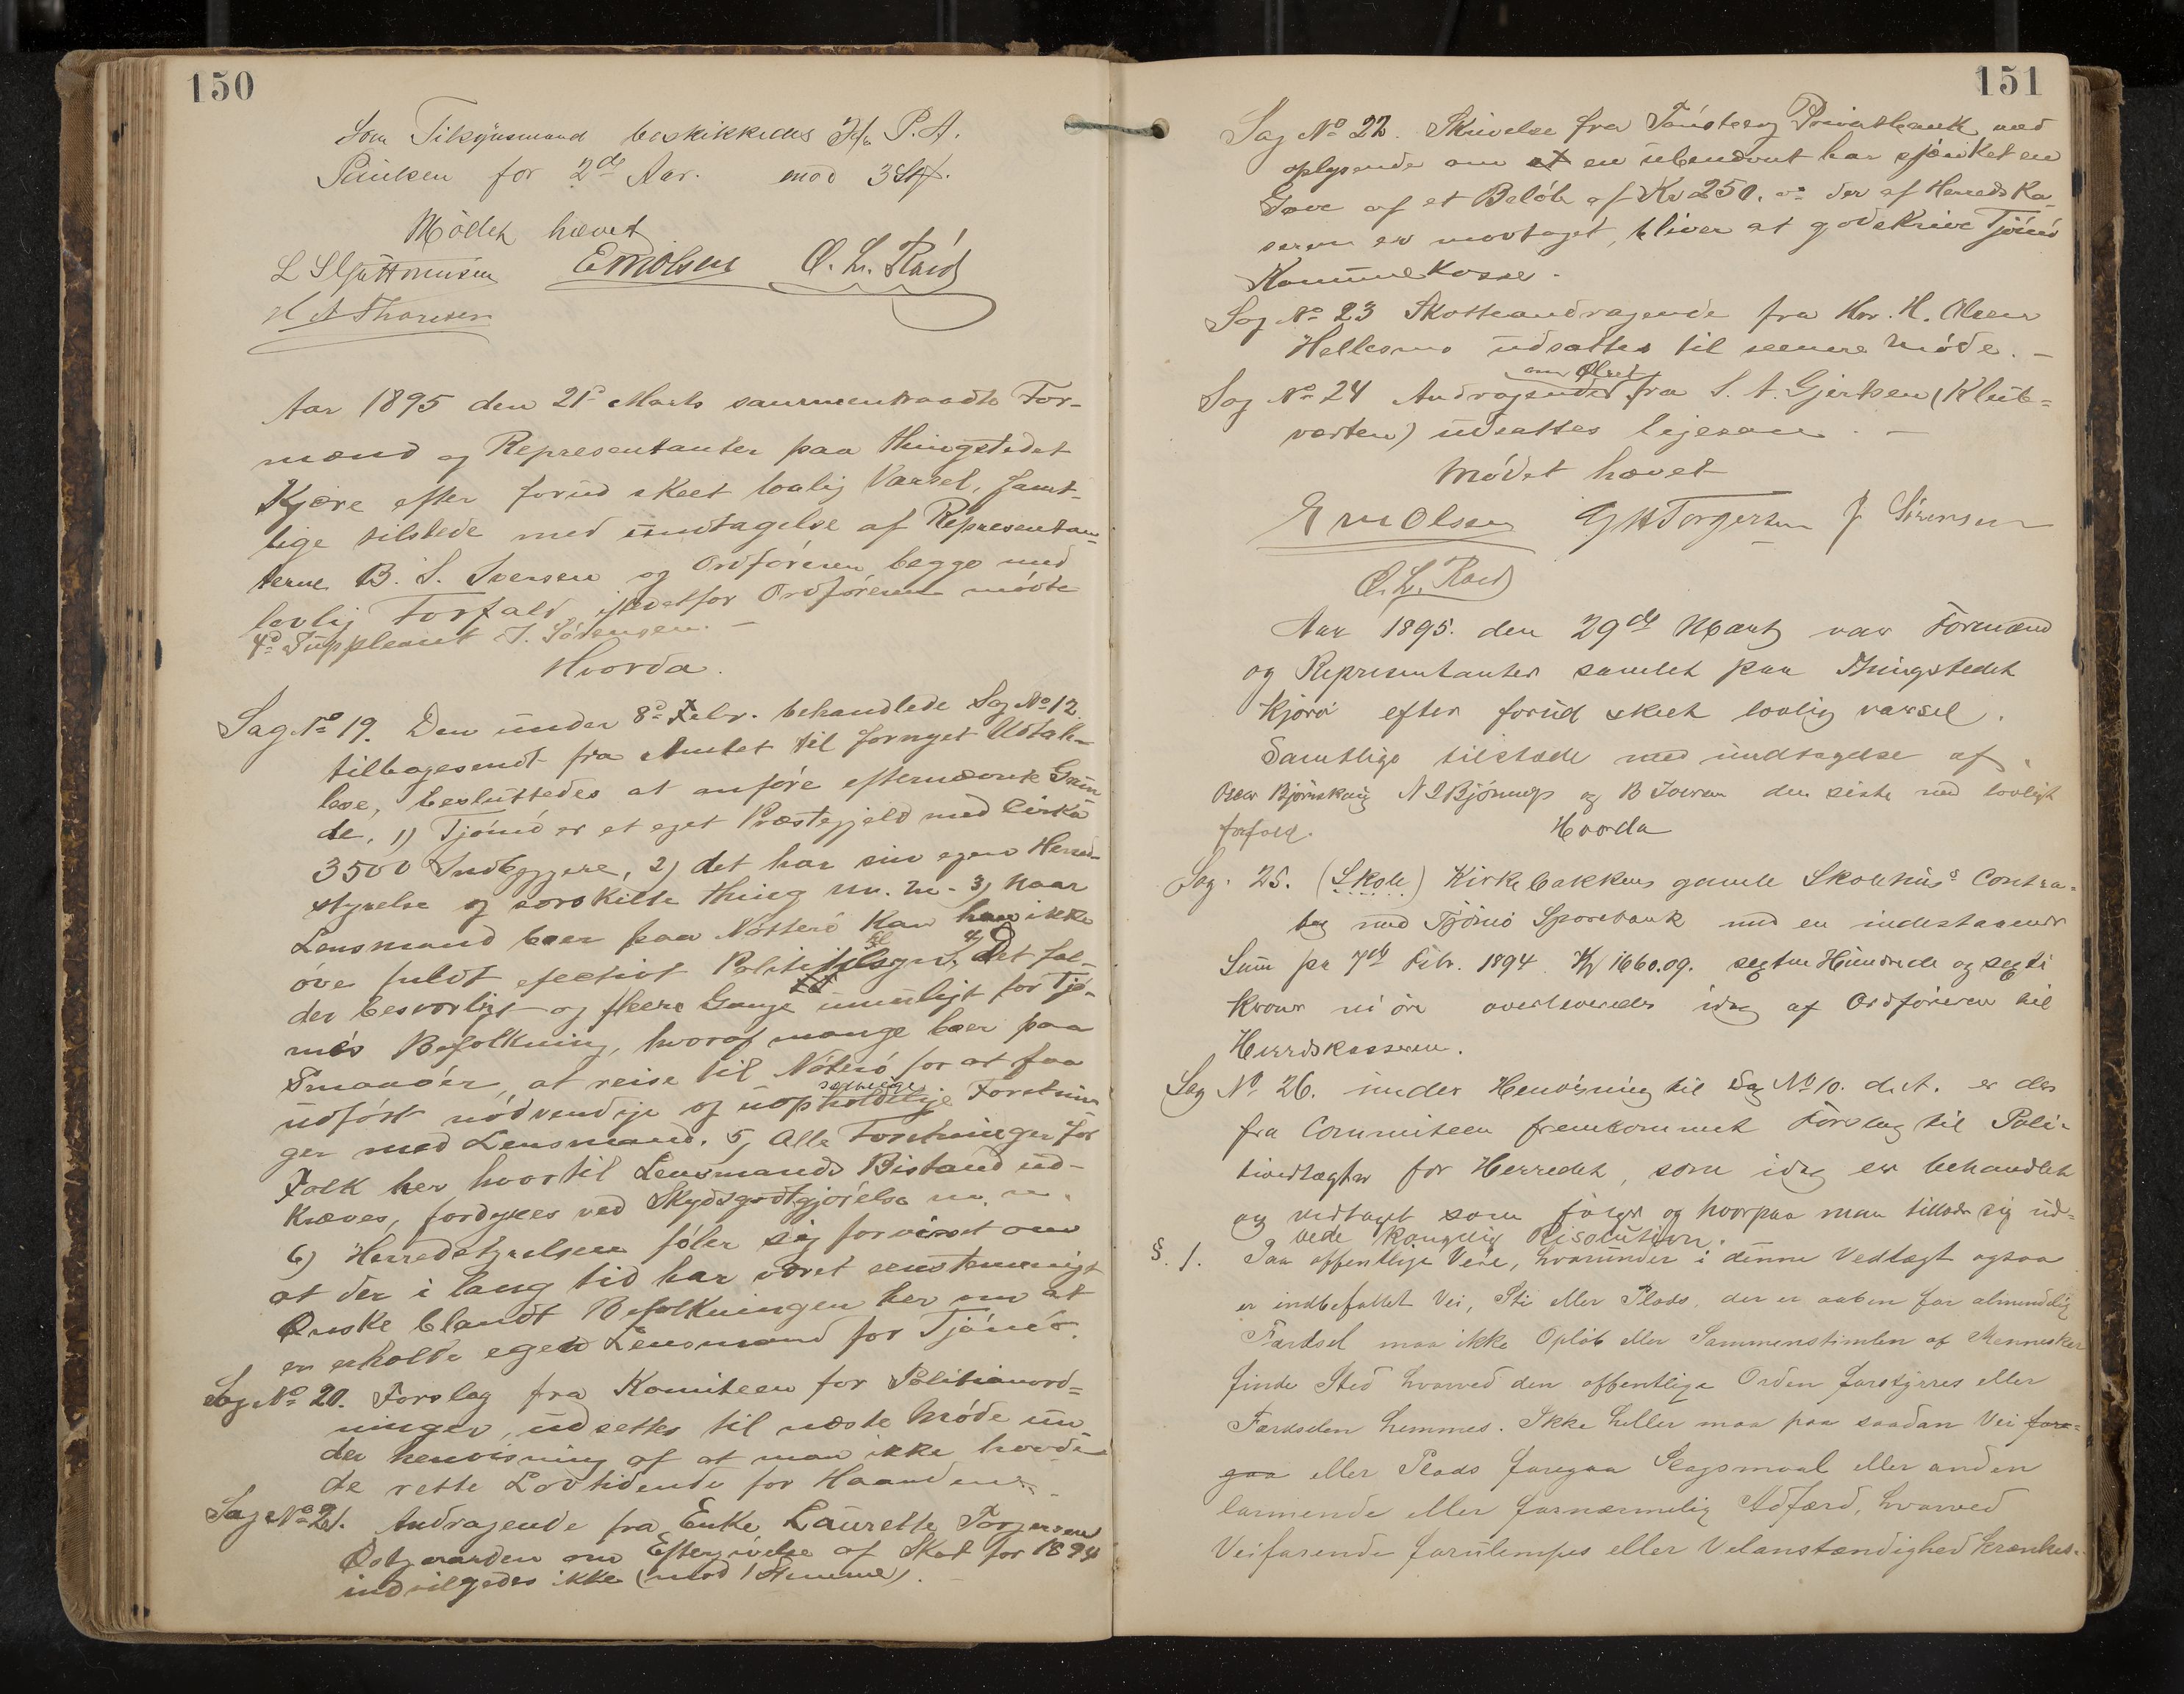 150
Som Tilsynsmand beskikkedes Hr. P. A.
Paulsen for 2de Aar. mod 3 St.
Mødet hævet
E M Olsen O. L. Røed
H A Thoresen
Aar 1895 den 21de Marts sammentraadte For-
mænd og Representanter paa Thingstedet
Kjære efter forud skeet lovlig Varsel, Samt-
lige tilstede med undtagelse af Representan-
terne B. S. Iversen og Ordføreren begge med
lovlig Forfald, istedetfor Ordføreren mødte
4de Suppleant J. Sørensen. —
Hvorda.
Sag No 19. Den under 8de Febr. behandlede Sag No 12
tilbagesendt fra Amtet til fornyet Udtal-
lese, besluttedes at anføre efternævnte Grun
de, 1) Tjømø er et eget Præstegjeld med cirka
3500 Indbyggere, 2) det har sin egen Herred-
styrelse og sørskilte thing m. m. 3) naar
Lensmand boer paa Nøtterø kan han ikke
øve fuldt efectivt Polititilsyn, 4) Det fal-
der besværligt og fleere Gange umuligt for Tjø-
mø's Befolkning, hvoraf mange boer paa
Smaaøer, at reise til Nøterø for at faa
udført nødvendige og uopsættelige Foretnin
ger med Lensmand. 5) Alle Foretninger for
Folk her hvortil Lensmands Bistand ud-
kræves, fordyres ved Skydsgodtgjørelse m. m.
6) Herredstyrelsen føler sig forvisset om
at der i lang tid har været eenstemmigt
Ønske blandt Befolkningen her om at
en erholde egen Lensmand for Tjømø.
Sag No 20. Forslag fra Komiteen for Politianord=
ninger, udsettes til næste Møde un
der henvisning af at man ikke havde
de rette Lovtidende for Haanden. —
Sag No 21. Andragende fra Enke Laurette Torgersen
Østgaarden om Eftergivelse af Skat for 1894
indvilgedes ikke (mod 1 Stemme). —
151
Sag No 22. Skrivelse fra Tønsberg Privatbank med
oplysende om at en ubenævnt har skjænket en
Gave af et Beløb af Kr 250.00 der af Herredska
sereren er movtaget, bliver at godskrive Tjømø
Kommunekasse.
Sag No 23 Skatteandragende fra Hr. H. Olsen
Hellesmo udsattes til seenere Møde. —
om Ølret
Sag No 24 Andragende fra S. A. Gjertsen (Klub=
værten) udsattes ligesom. —
Mødet hævet
E M Olsen G H Torgersen J Sørensen
O. L. Røed
Aar 1895. den 29de Marts var Formænd
og Representanter samlet paa Thingstedet
Kjære efter forud skeet lovlig varsel.
Samtlige tilstede med undtagelse af
Oscar Bjørnskaug N L Bjønnes og B Iversen den siste med lovligt
forfald. Hvorda
Sag. 25. (Skole) Kirkebakkens gamle Skolehus's Contra-
bog med Tjømø Sparebank med en indestaaende
Sum pr 7de Febr. 1894 Kr 1660.09. sexten Hundrede og sexti
kroner ni øre overleveredes idag af Ordføreren til
Herredskasseren.
Sag No 26. under Henvisning til Sag No 10. d. A. er der
fra Commiteen fremkommet Forslag til Poli-
tivedtægter for Herredet, som idag er behandlet
og vedtaget som følger og hvorpaa man tillader sig ud=
bede kongelig Resolution.
§. 1. Paa offentlige Veie, hvorunder i denne Vedtægt ogsaa
er indbefattet Vei, Sti eller Plads, der er aaben for almindelig
Færdsel maa ikke Opløb eller Sammenstimlen af Mennesker
finde Sted hvorved den offentlige Orden forstyrres eller
Færdselen hemmes. Ikke heller maa paa saadan Vei fore=
gaa eller Plads foregaa Slagsmaal eller anden
larmende eller fornærmelig Adfærd, hvorved
Veifarende forulempes eller Velanstændighed krænkes.